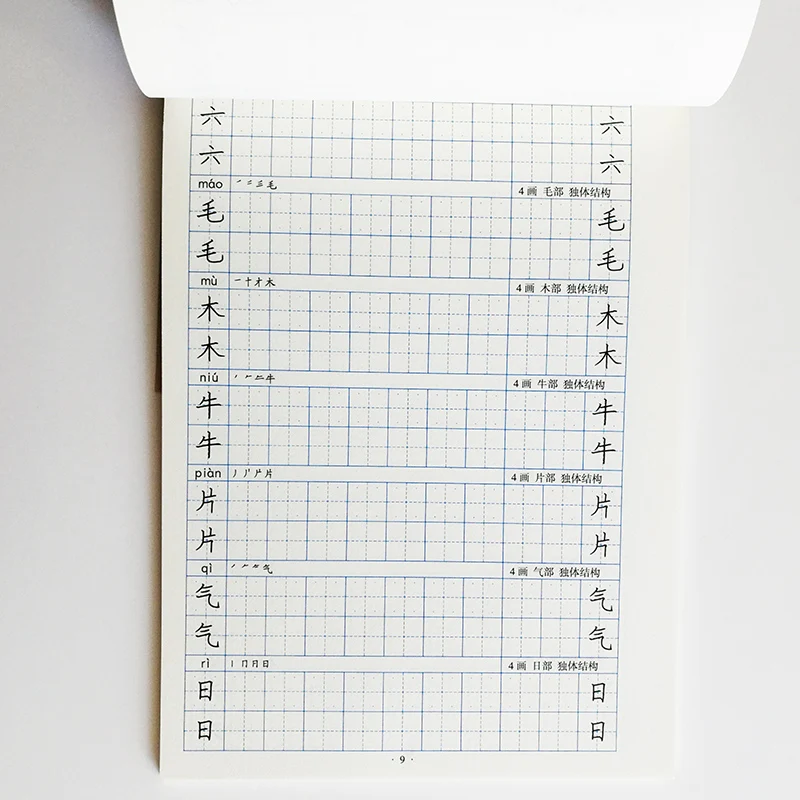 六 六
六 六
máo 一 二 三 毛 4画 毛部 独体结构
毛 毛
毛 毛
mù 一 十 才 木 4画 木部 独体结构
木 木
木 木
niú 丿 𠂉 二 牛 4画 牛部 独体结构
牛 牛
牛 牛
piàn 丿 丿丨 片 4画 片部 独体结构
片 片
片 片
qì 丿 𠂉 气 4画 气部 独体结构
气 气
气 气
rì 丨 冂 日 日 4画 日部 独体结构
日 日
日 日
· 9 ·